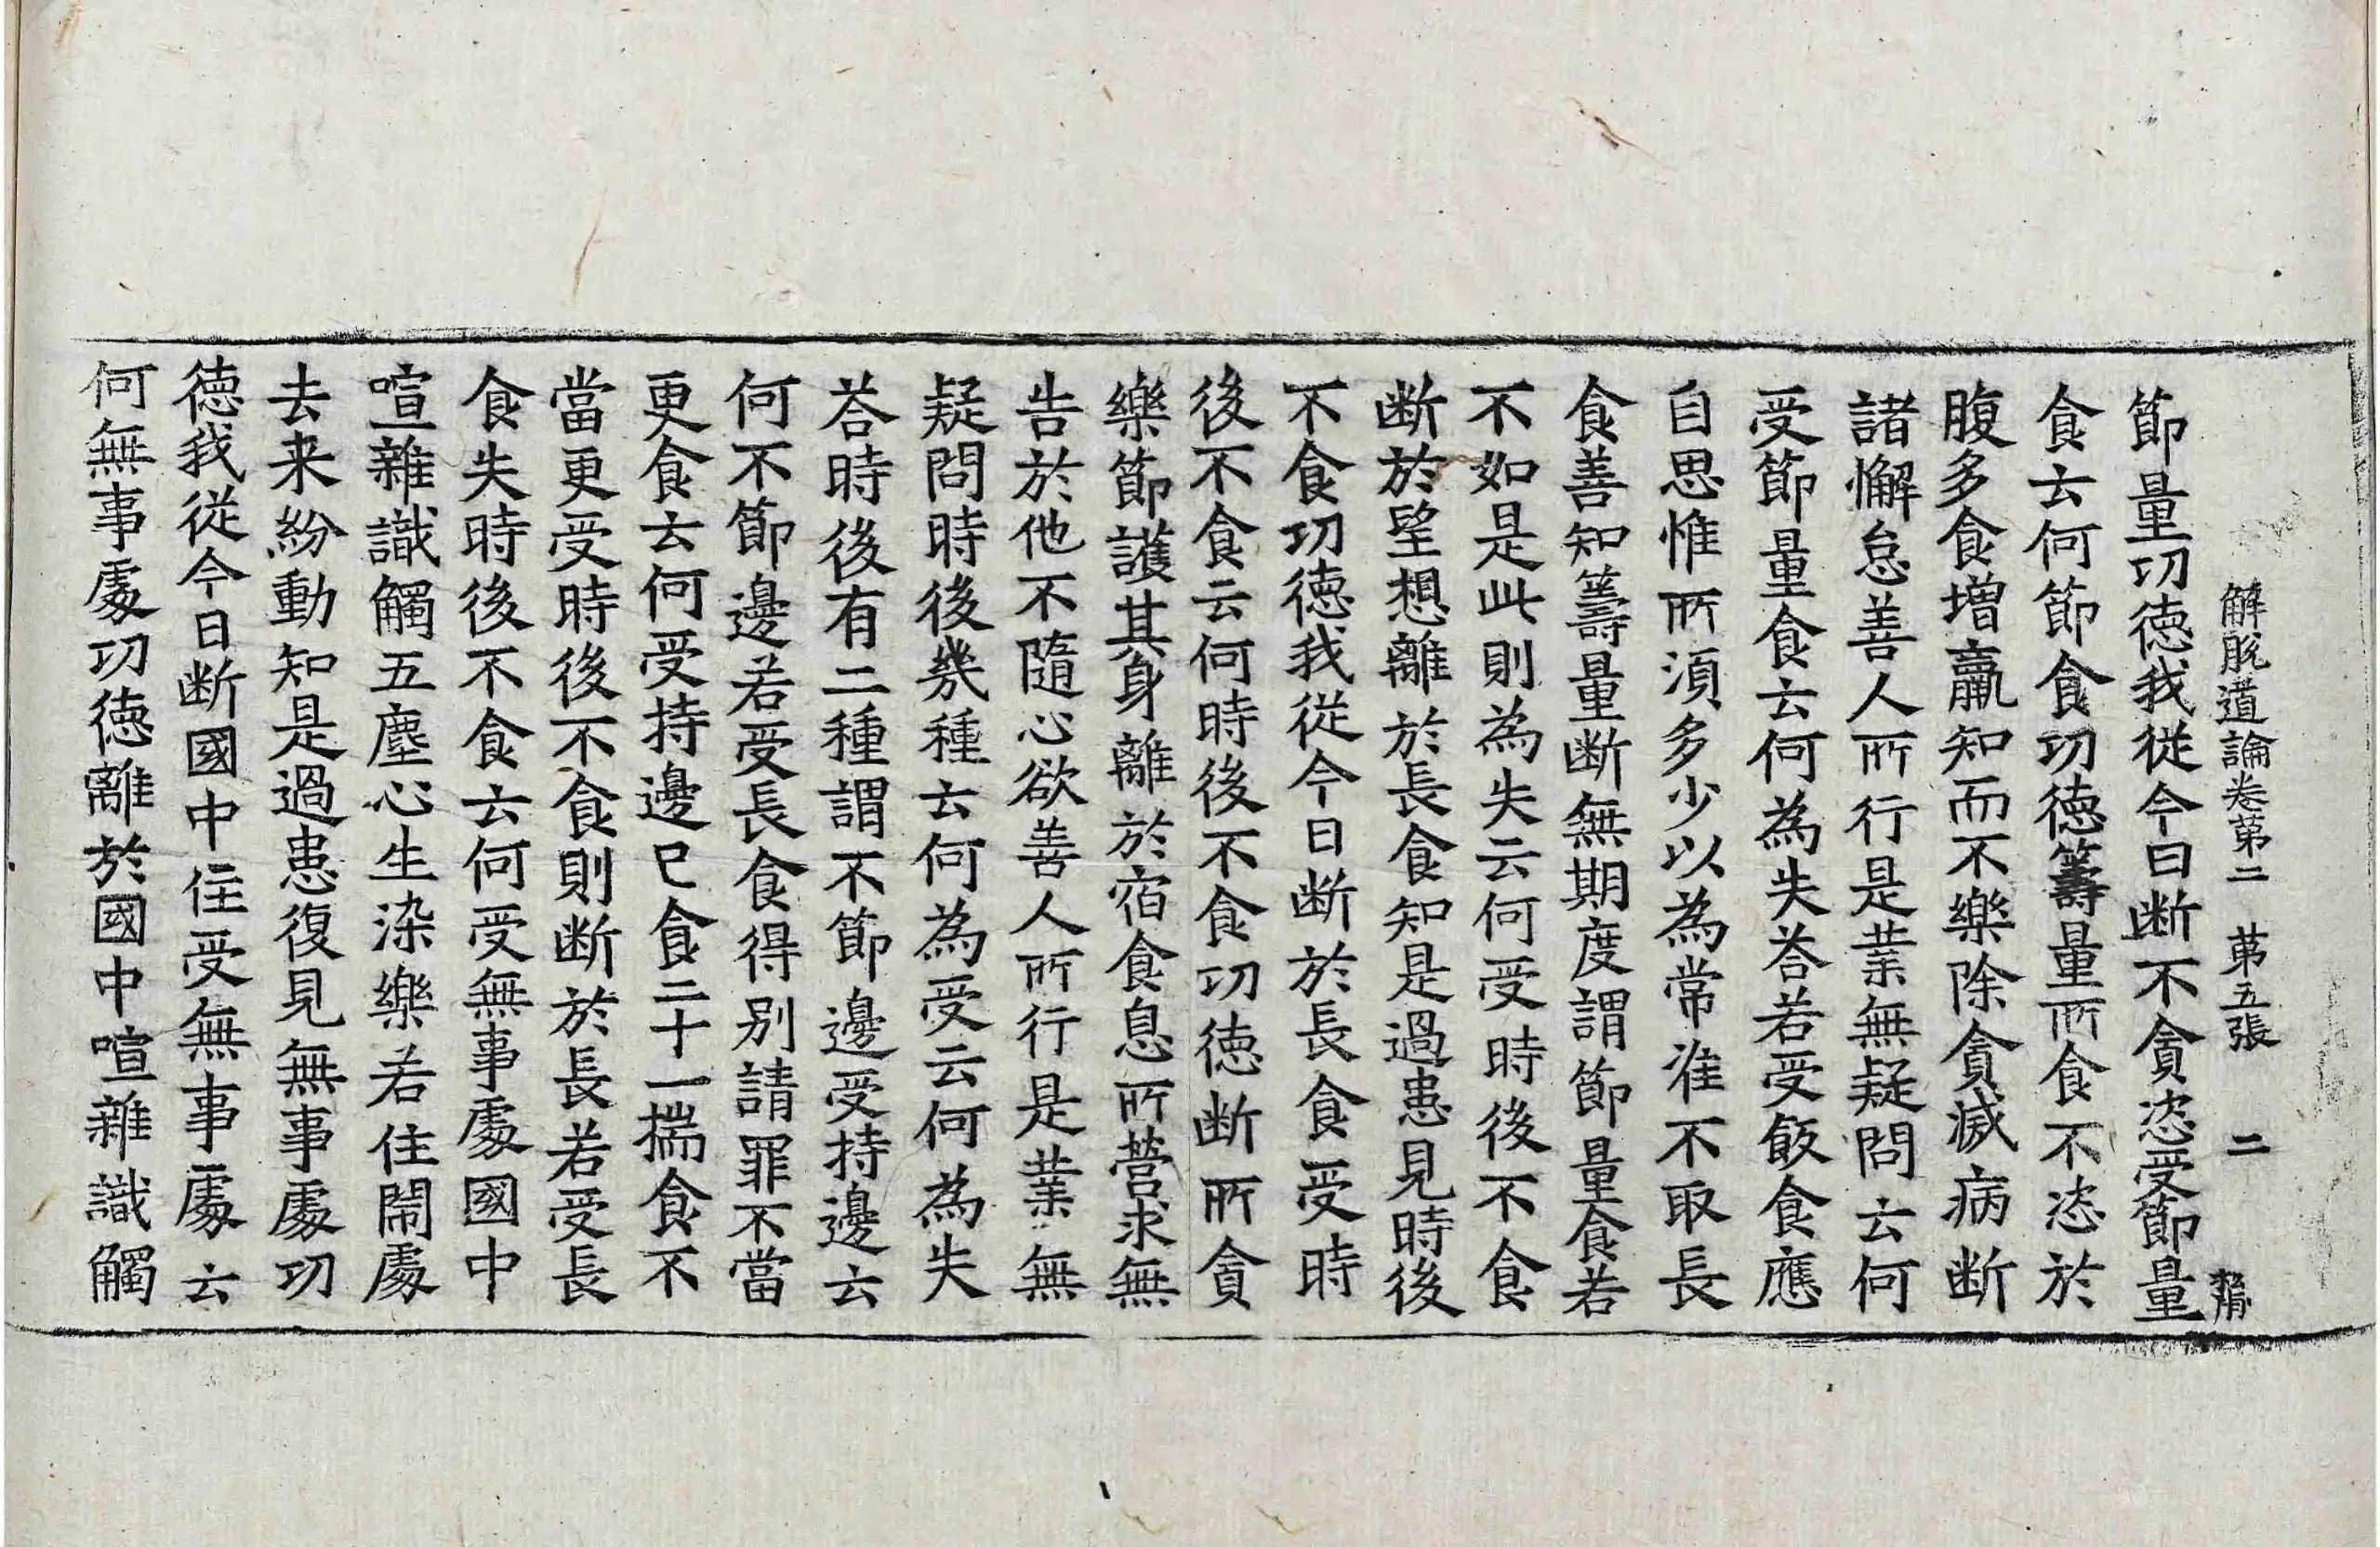 解脫道論卷第二 第五張 二
節量功德我從今日断不貪恣受節量
食云何節食功德籌量所食不恣於
腹多食增羸知而不樂除貪滅病断
諸懈怠善人所行是業無疑問云何
受節量食云何為失荅若受飯食應
自思惟所須多少以為常准不取長
食善知籌量断無期度謂節量食若
不如是此則為失云何受時後不食
断於望想離於長食知是過患見時後
不食功德我從今日断於長食受時
後不食云何時後不食功德断所貪
樂節護其身離於宿食息所營求無
告於他不隨心欲善人所行是業無
疑問時後幾種云何為受云何為失
荅時後有二種謂不節邊受持邊云
何不節邊若受長食得別請罪不當
更食云何受持邊已食二十一揣食不
當更受時後不食則断於長若受長
食失時後不食云何受無事處國中
喧雜識觸五塵心生染樂若住閙處
去来紛動知是過患復見無事處功
德我從今日断國中住受無事處云
何無事處功德離於國中喧雜識觸